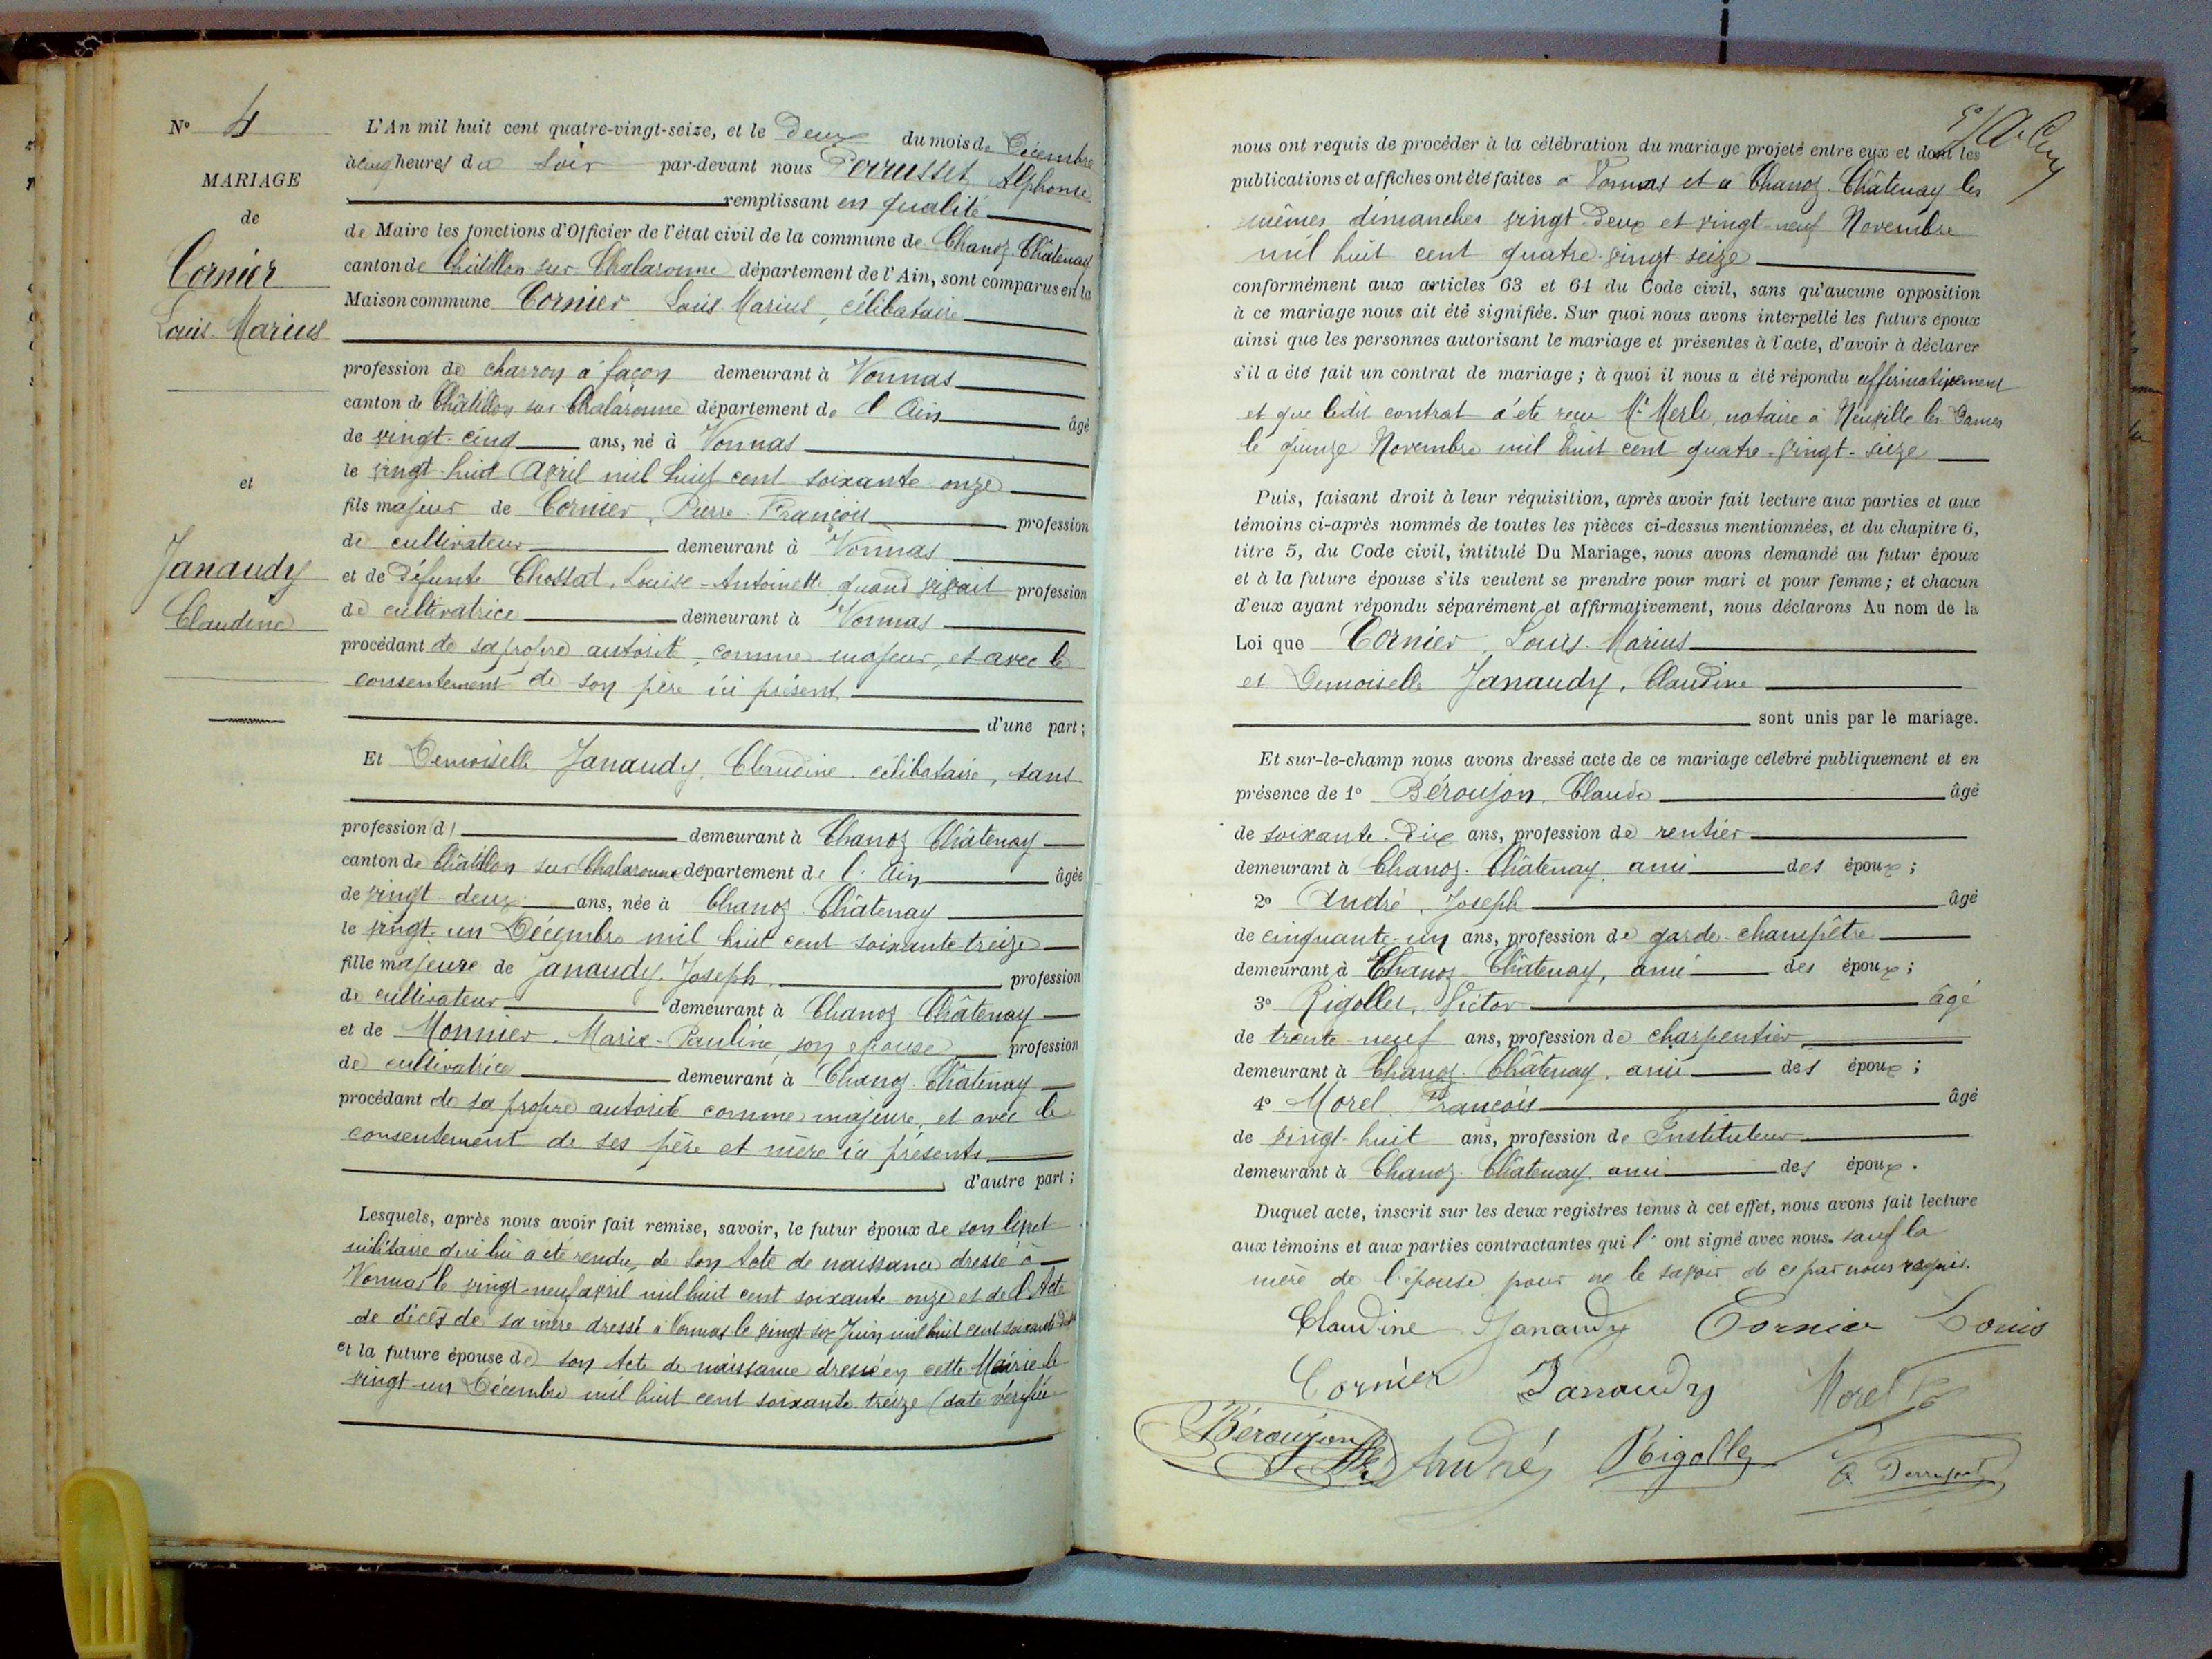 N° 4
MARIAGE
de
Cornier
Louis-Marius
et
Janaudy
Claudine
L'An mil huit cent quatre-vingt-seize, et le Deux du mois de Décembre
à cinq heures du soir par-devant nous Perrusset Alphonse
remplissant en qualité
de Maire les fonctions d'Officier de l'état civil de la commune de Chanoz-Châtenay
canton de Châtillon sur Chalaronne département de l'Ain, sont comparus en la
Maison commune Cornier Louis-Marius, célibataire
profession de charron à façon demeurant à Vonnas
canton de Châtillon sur Chalaronne département de l'Ain âgé
de vingt-cinq ans, né à Vonnas
le vingt-huit Avril mil huit cent soixante onze
fils majeur de Cornier, Pierre-François profession
de cultivateur demeurant à Vonnas
et de défunte Chossat, Louise-Antoinette quand vivait profession
de cultivatrice demeurant à Vonnas
procédant de sa propre autorité, comme majeur, et avec le
consentement de son père ici présent
d'une part;
Et Demoiselle Janaudy, Claudine, célibataire, sans
profession d demeurant à Chanoz Châtenay
canton de Châtillon sur Chalaronne département de l'Ain âgée
de vingt-deux ans, née à Chanoz Châtenay
le vingt-un Décembre mil huit cent soixante treize
fille majeure de Janaudy, Joseph profession
de cultivateur demeurant à Chanoz Châtenay
et de Monnier, Marie-Pauline, son épouse profession
de cultivatrice demeurant à Chanoz-Châtenay
procédant de sa propre autorité comme majeure, et avec le
consentement de ses père et mère ici présents
d'autre part;
Lesquels, après nous avoir fait remise, savoir, le futur époux de son livret
militaire qui lui a été rendu, de son Acte de naissance dressé à
Vonnas le vingt-neuf avril mil huit cent soixante onze et de l'Acte
de décès de sa mère dressé à Vonnas le vingt six Juin mil huit cent soixante
et la future épouse de son Acte de naissance dressé en cette Mairie le
vingt-un Décembre mil huit cent soixante-treize (date vérifiée
nous ont requis de procéder à la célébration du mariage projeté entre eux et dont les
publications et affiches ont été faites à Vonnas et à Chanoz-Châtenay les
mêmes dimanches vingt-deux et vingt-neuf Novembre
mil huit cent quatre-vingt-seize
conformément aux articles 63 et 64 du Code civil, sans qu'aucune opposition
à ce mariage nous ait été signifiée. Sur quoi nous avons interpellé les futurs époux
ainsi que les personnes autorisant le mariage et présentes à l'acte, d'avoir à déclarer
s'il a été fait un contrat de mariage; à quoi il nous a été répondu affirmativement
et que ledit contrat a été reçu Me Merle, notaire à Neuville les Dames
le quinze Novembre mil huit cent quatre-vingt-seize
Puis, faisant droit à leur réquisition, après avoir fait lecture aux parties et aux
témoins ci-après nommés de toutes les pièces ci-dessus mentionnées, et du chapitre 6,
titre 5, du Code civil, intitulé Du Mariage, nous avons demandé au futur époux
et à la future épouse s'ils veulent se prendre pour mari et pour femme; et chacun
d'eux ayant répondu séparément et affirmativement, nous déclarons Au nom de la
Loi que Cornier, Louis-Marius
et Demoiselle Janaudy, Claudine
sont unis par le mariage.
Et sur-le-champ nous avons dressé acte de ce mariage célébré publiquement et en
présence de 1° Béroujon, Claude âgé
de soixante-dix ans, profession de rentier
demeurant à Chanoz-Châtenay, ami des époux;
2° André, Joseph âgé
de cinquante-un ans, profession de garde-champêtre
demeurant à Chanoz-Châtenay, ami des époux;
3° Rigollet, Victor âgé
de trente-neuf ans, profession de charpentier
demeurant à Chanoz-Châtenay, ami des époux;
4° Morel, François âgé
de vingt-huit ans, profession de Instituteur
demeurant à Chanoz-Châtenay, ami des époux.
Duquel acte, inscrit sur les deux registres tenus à cet effet, nous avons fait lecture
aux témoins et aux parties contractantes qui l'ont signé avec nous. sauf la
mère de l'épouse pour ne le savoir de ce par nous requis.
Claudine Janaudy Cornier Louis
Cornier Janaudy Morel
Béroujon André Rigollet A Perrusset